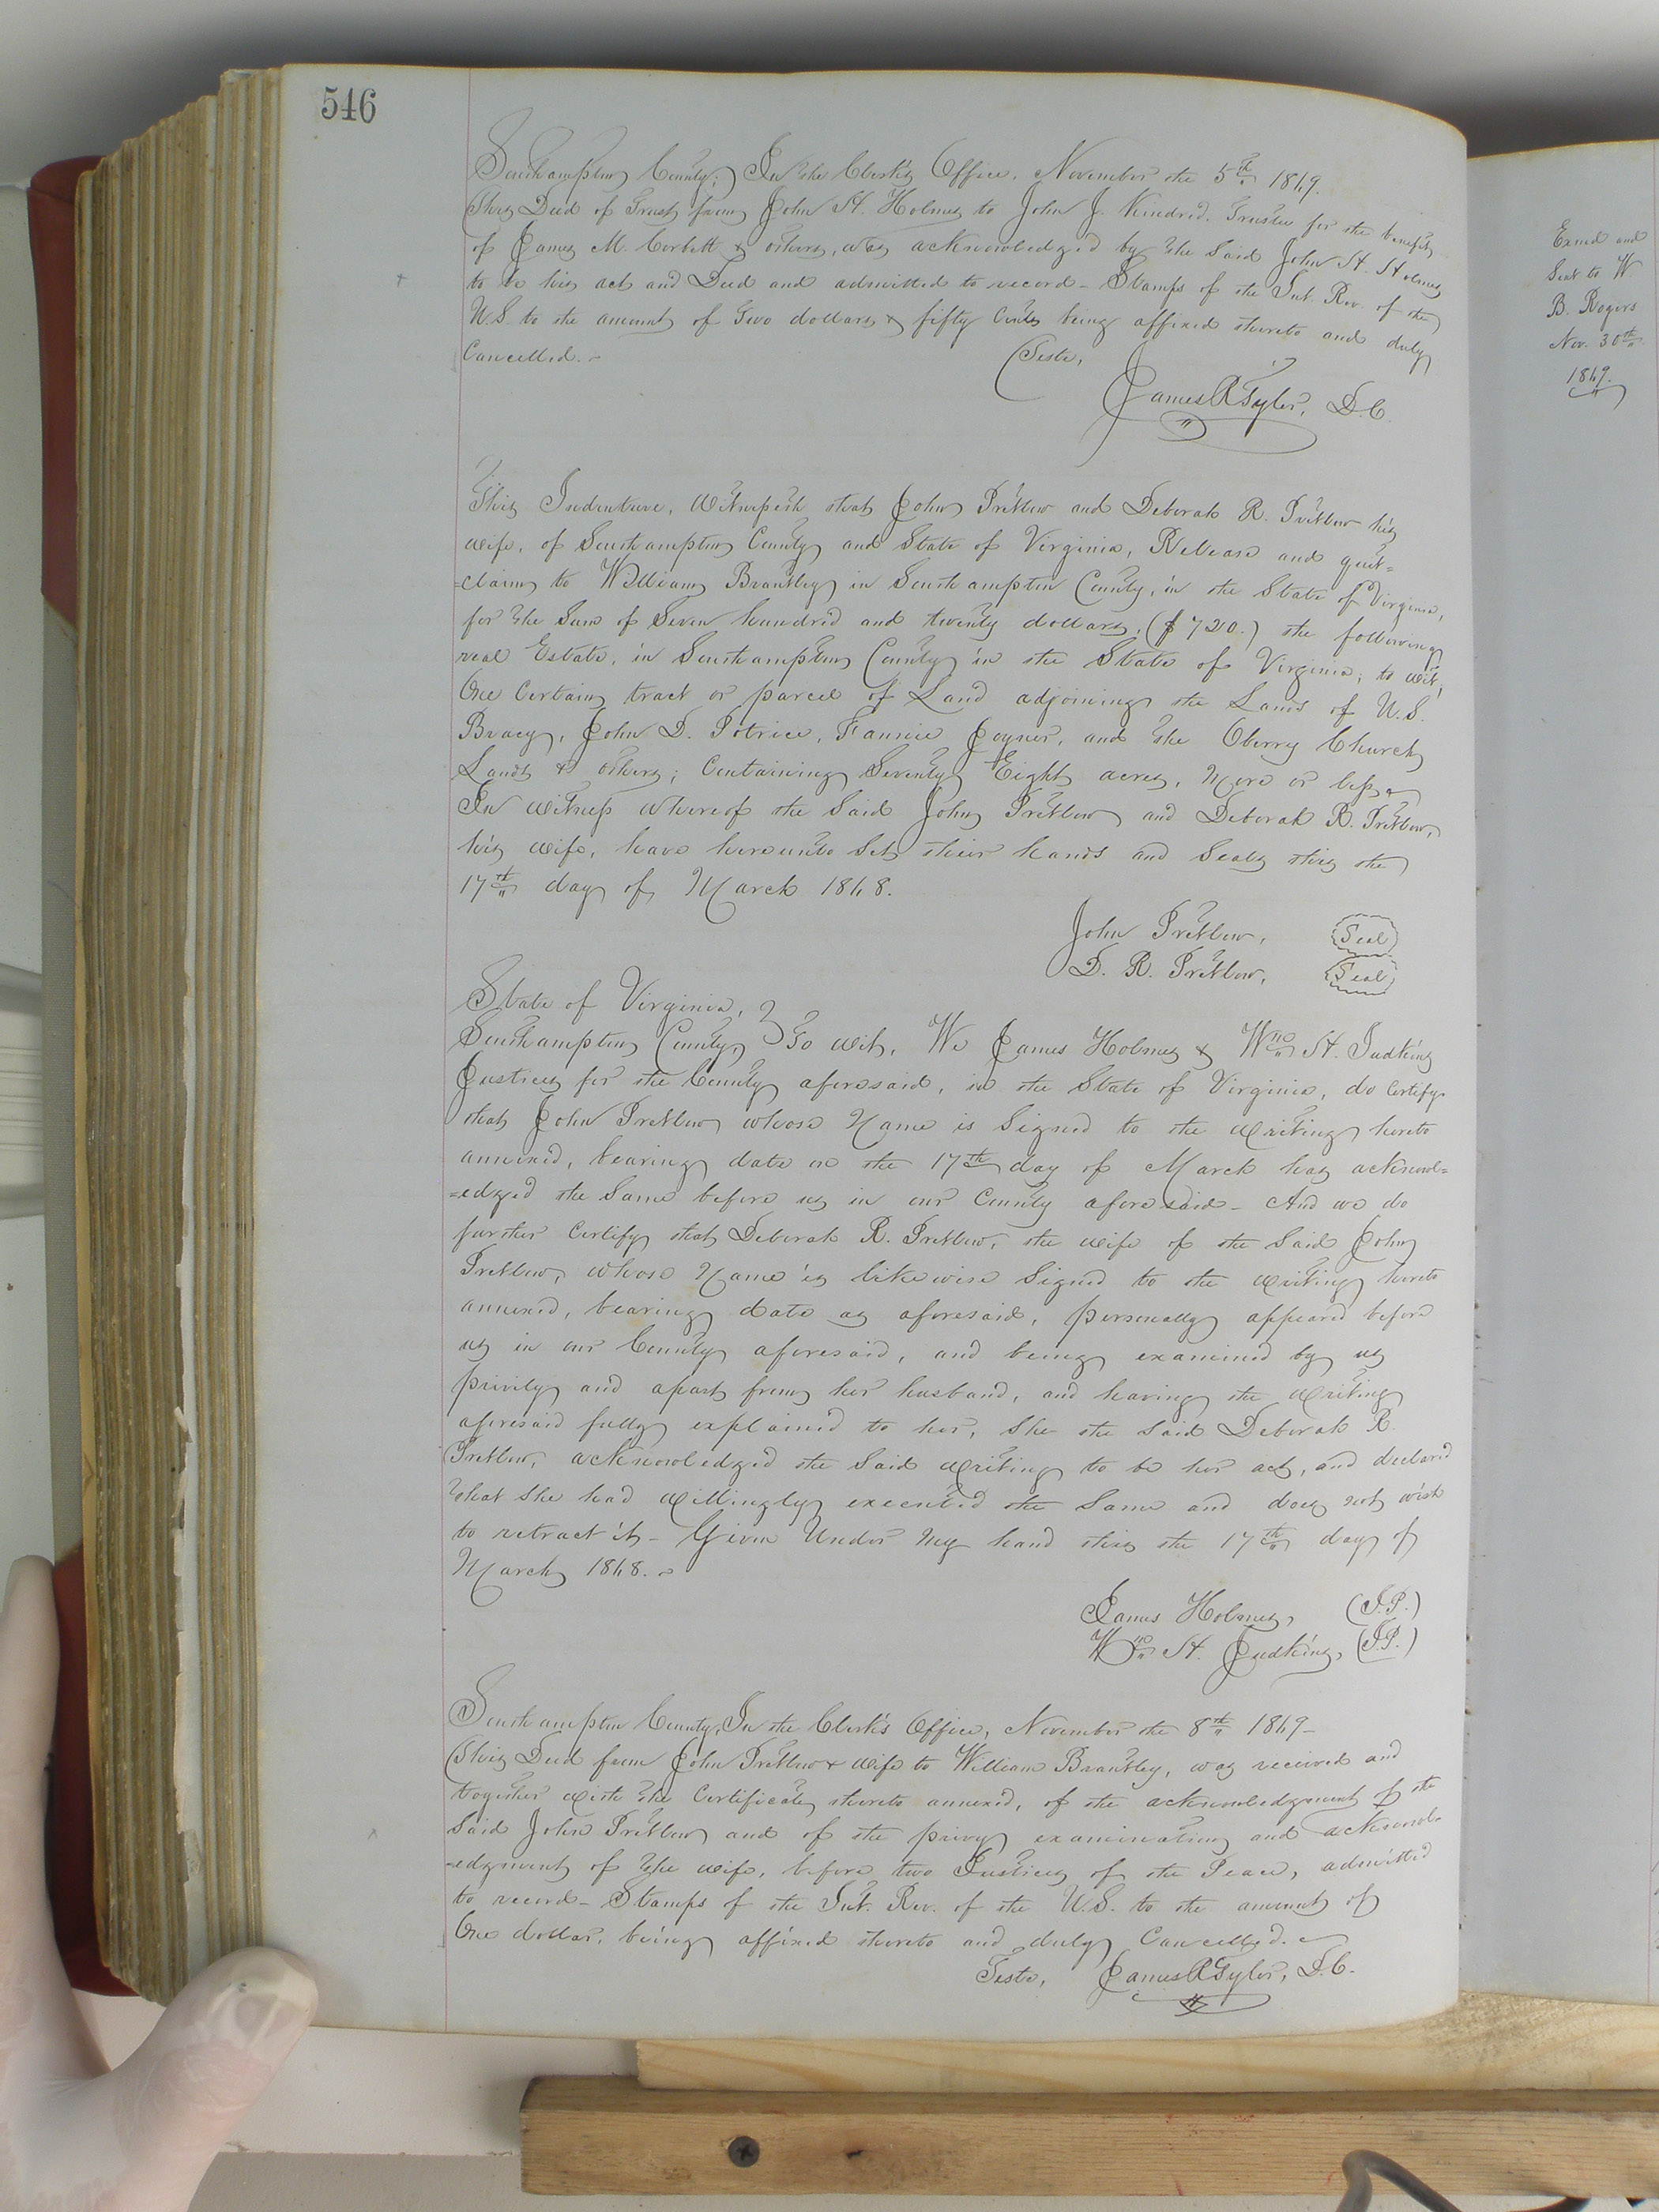 546
Southampton County; In the Clerk's Office, November the 5th 1869.
This Deed of Trust from John H. Holmes to John J. Kindred, Trustee for the benefit
of James M. Corbett & others, was acknowledged by the Said John H. Holmes
to be his act and Deed and admitted to record - Stamps of the Int. Rev. of the
U.S. to the amount of Two dollars & fifty Cents being affixed thereto and duly
Cancelled.-
Teste,
James R Tyler, D.C.
This Indenture, Witnesseth that John Pretlow and Deborah R. Pretlow his
wife, of Southampton County and State of Virginia, Release and quit=
=claim to William Brantley in Southampton County, in the State of Virginia,
for the Sum of Seven hundred and twenty dollars, ($720.) the following
real Estate, in Southampton County in the State of Virginia; to wit;
One Certain tract or parcel of Land adjoining the Lands of U.S.
Bracy, John D. Fannie Joyner, and the Oberry Church
Lands & others; Containing Seventy Eight acres, More or less
In witness whereof the Said John Pretlow and Deborah R. Pretlow,
his wife, have hereunto Set their hands and Seals this the
17th day of March 1868.
John Pretlow, (Seal)
D. R. Pretlow, (Seal)
State of Virginia,
Southampton County, To wit, We James Holmes & Wm H. Judkins
Justices for the County aforesaid, in the State of Virginia, do Certify
that John Pretlow whose Name is Signed to the writing hereto
annexed, bearing date on the 17th day of March has acknowl=
=edged the Same before us in our County aforesaid - And we do
further Certify that Deborah R. Pretlow, the wife of the Said John
Pretlow, whose Name is likewise Signed to the writing hereto
annexed, bearing date as aforesaid, personally appeared before
us in our County aforesaid, and being examined by us
privily and apart from her husband, and having the writing
aforesaid fully explained to her, She the Said Deborah R.
Pretlow, acknowledged the Said writing to be her act, and declared
that She had willingly executed the Same and does not wish
to retract it - Given Under My hand this the 17th day of
March 1868.
James Holmes, (J.P.)
Wm H. Judkins, (J.P.)
Southampton County, In the Clerk's Office, November the 8th 1869-
This Deed from John Pretlow & wife to William Brantley, was received and
together with the Certificate, thereto annexed, of the acknowledgment of the
Said John Pretlow and of the privy examination and acknowl-
-edgment of the wife, before two Justices of the Peace, admitted
to record - Stamps of the Int. Rev. of the U.S. to the amount of
One dollar, being affixed thereto and duly Cancelled.
Teste, James R Tyler, D.C.
Exmd and
Sent to W
B. Rogers
Nov. 30th
1869.